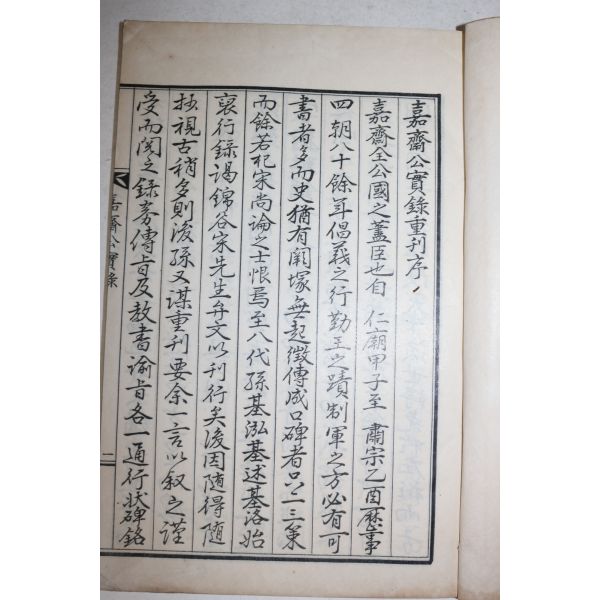 嘉齋公實錄重刊序
嘉齋全公國之藎臣也自 仁廟甲子至 肅宗乙酉歷事
四朝八十餘年倡義之行勤王之蹟制軍之方必有可
書者多而史猶有闕塚無起徵傳咸口碑者只二三策
而餘若杞宋尚論之士恨焉至八代孫基泓基述基洛始
裒行錄謁錦谷宋先生弁文以刊行矣後因隨得隨
抄視古稍多則後孫又謀重刊要余一言以叙之謹
受而閱之錄劵傳旨及教書諭旨各一通行狀碑銘
嘉齋公實錄
二